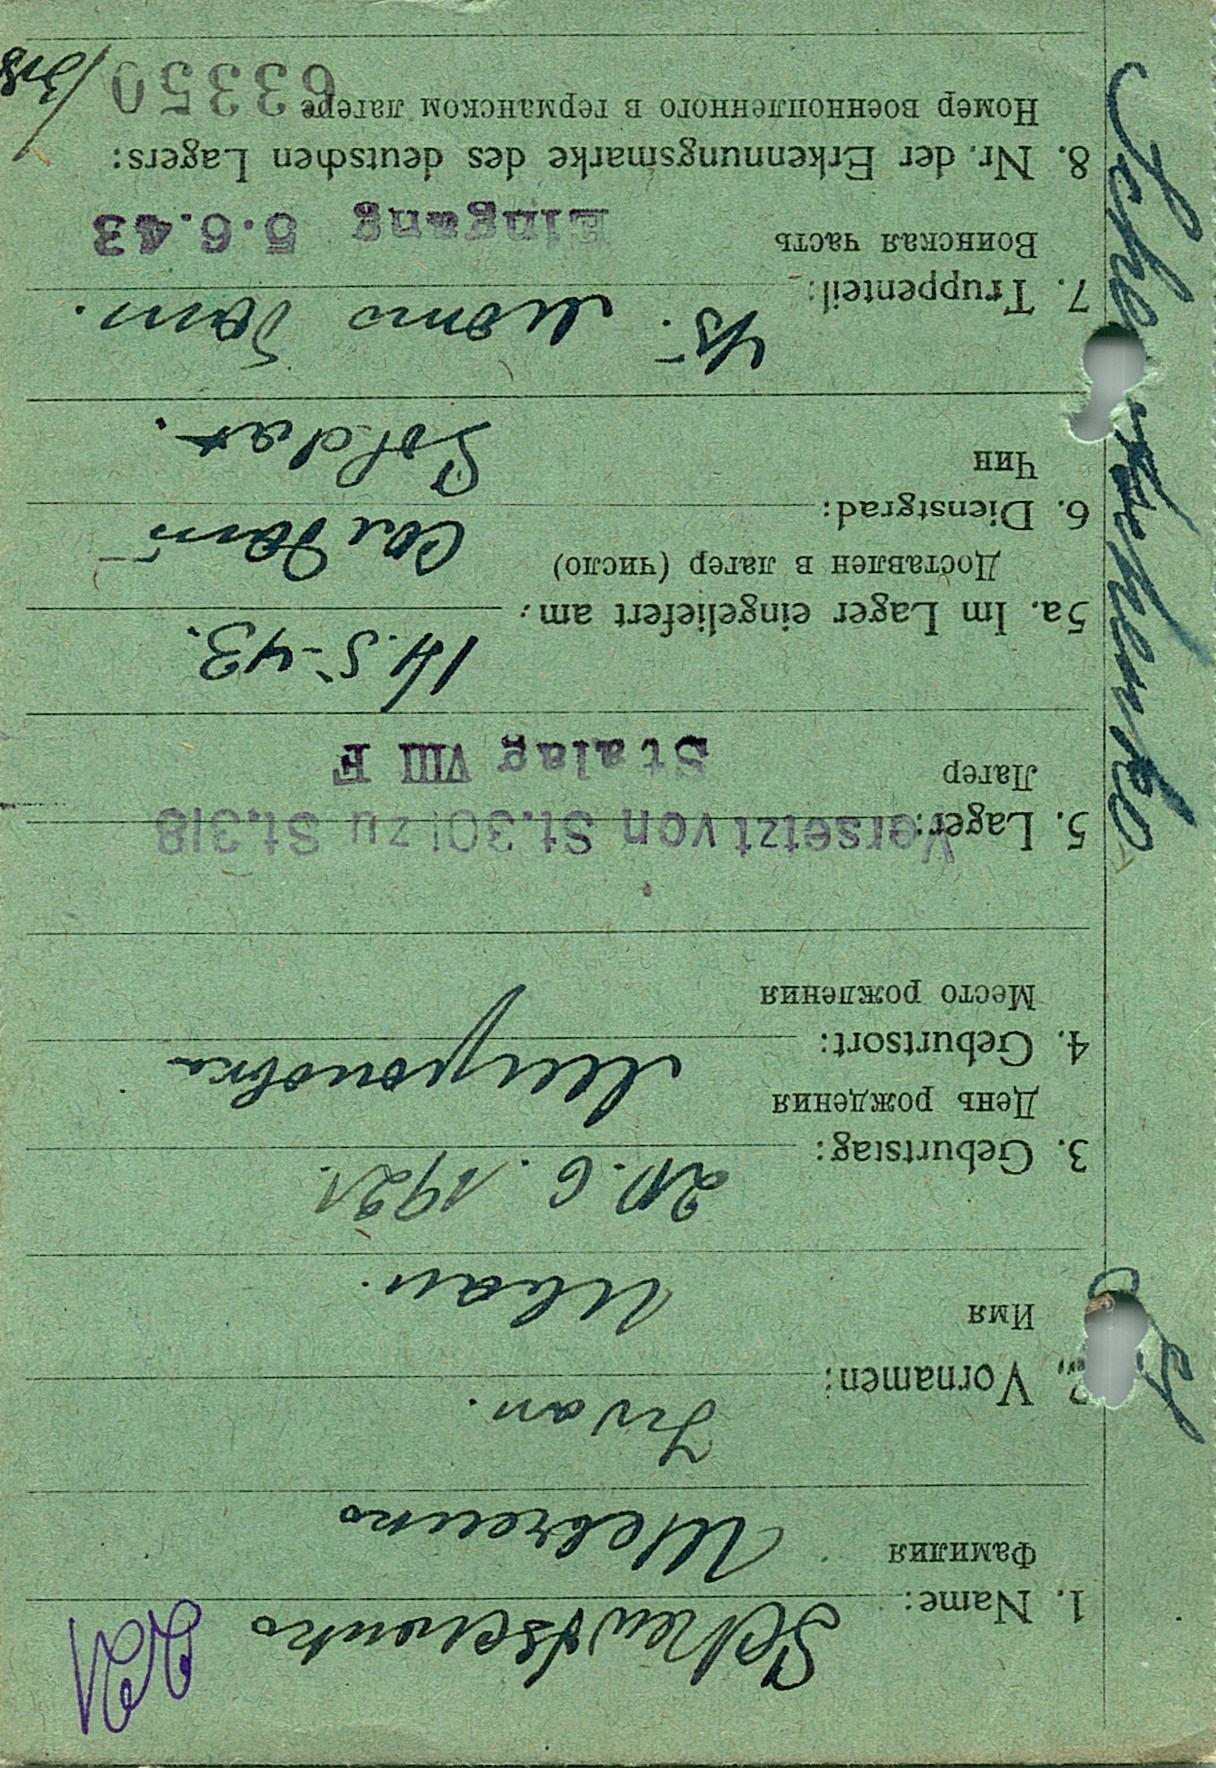 1. Name: Schewtschenko
Фамилия Шевченко
Iwan.
2. Vornamen:
Имя Иван.
3. Geburtstag: 20.6.1921.
День рождения
4. Geburtsort: Мироновка
Место рождения
5. Lager: Versetzt von St.301 zu St.318
Лагер Stalag VIII F
14.5-43.
5a. Im Lager eingeliefert am:
Доставлен в лагер (число)
6. Dienstgrad: Солдат
Чин Soldat.
7. Truppenteil:
Воинская часть Eingang 5.6.43
8. Nr. der Erkennungsmarke des deutschen Lagers:
Номер военнопленного в германском лагере 63350/318